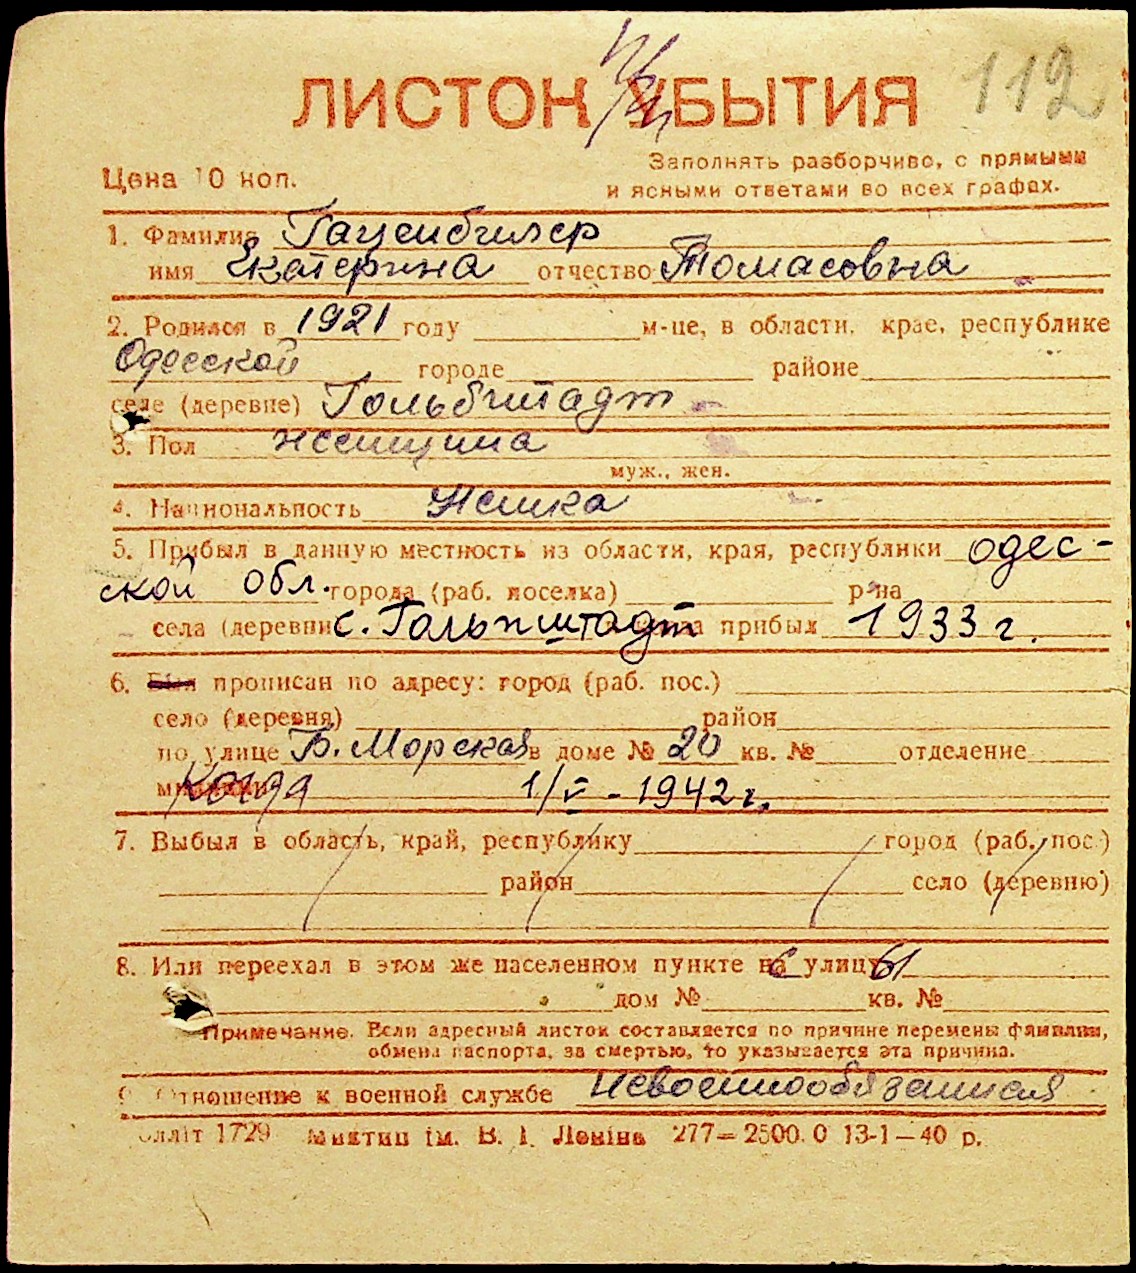 ЛИСТОК УБЫТИЯ
112
Цена 10 коп.
Заполнять разборчиво, с прямыми
и ясными ответами во всех графах.
1. Фамилия Гауенбилер
имя Екатерина отчество Томасовна
2. Родился в 1921 году м-це, в области, крае, республике
Одесской городе районе
селе (деревне) Гольбштадт
3. Пол женщина
муж., жен.
4. Национальность Немка
5. Прибыл в данную местность из области, края, республики одес-
ской обл. города (раб. поселка) р-на
села (деревни) с. Гальпштадт прибыл 1933 г.
6. прописан по адресу: город (раб. пос.)
село (деревня) район
по улице Б. Морская в доме № 20 кв. № отделение
Когда 1/V - 1942 г.
7. Выбыл в область, край, республику город (раб. пос.)
район село (деревню)
8. Или переехал в этом же населенном пункте на улицу
дом № кв. №
Примечание. Если адресный листок составляется по причине перемены фамилии,
обмена паспорта, за смертью, то указывается эта причина.
9. Отношение к военной службе невоеннообязанная
1729 ім. В. І. Леніна 277—2500.0 13-1—40 р.